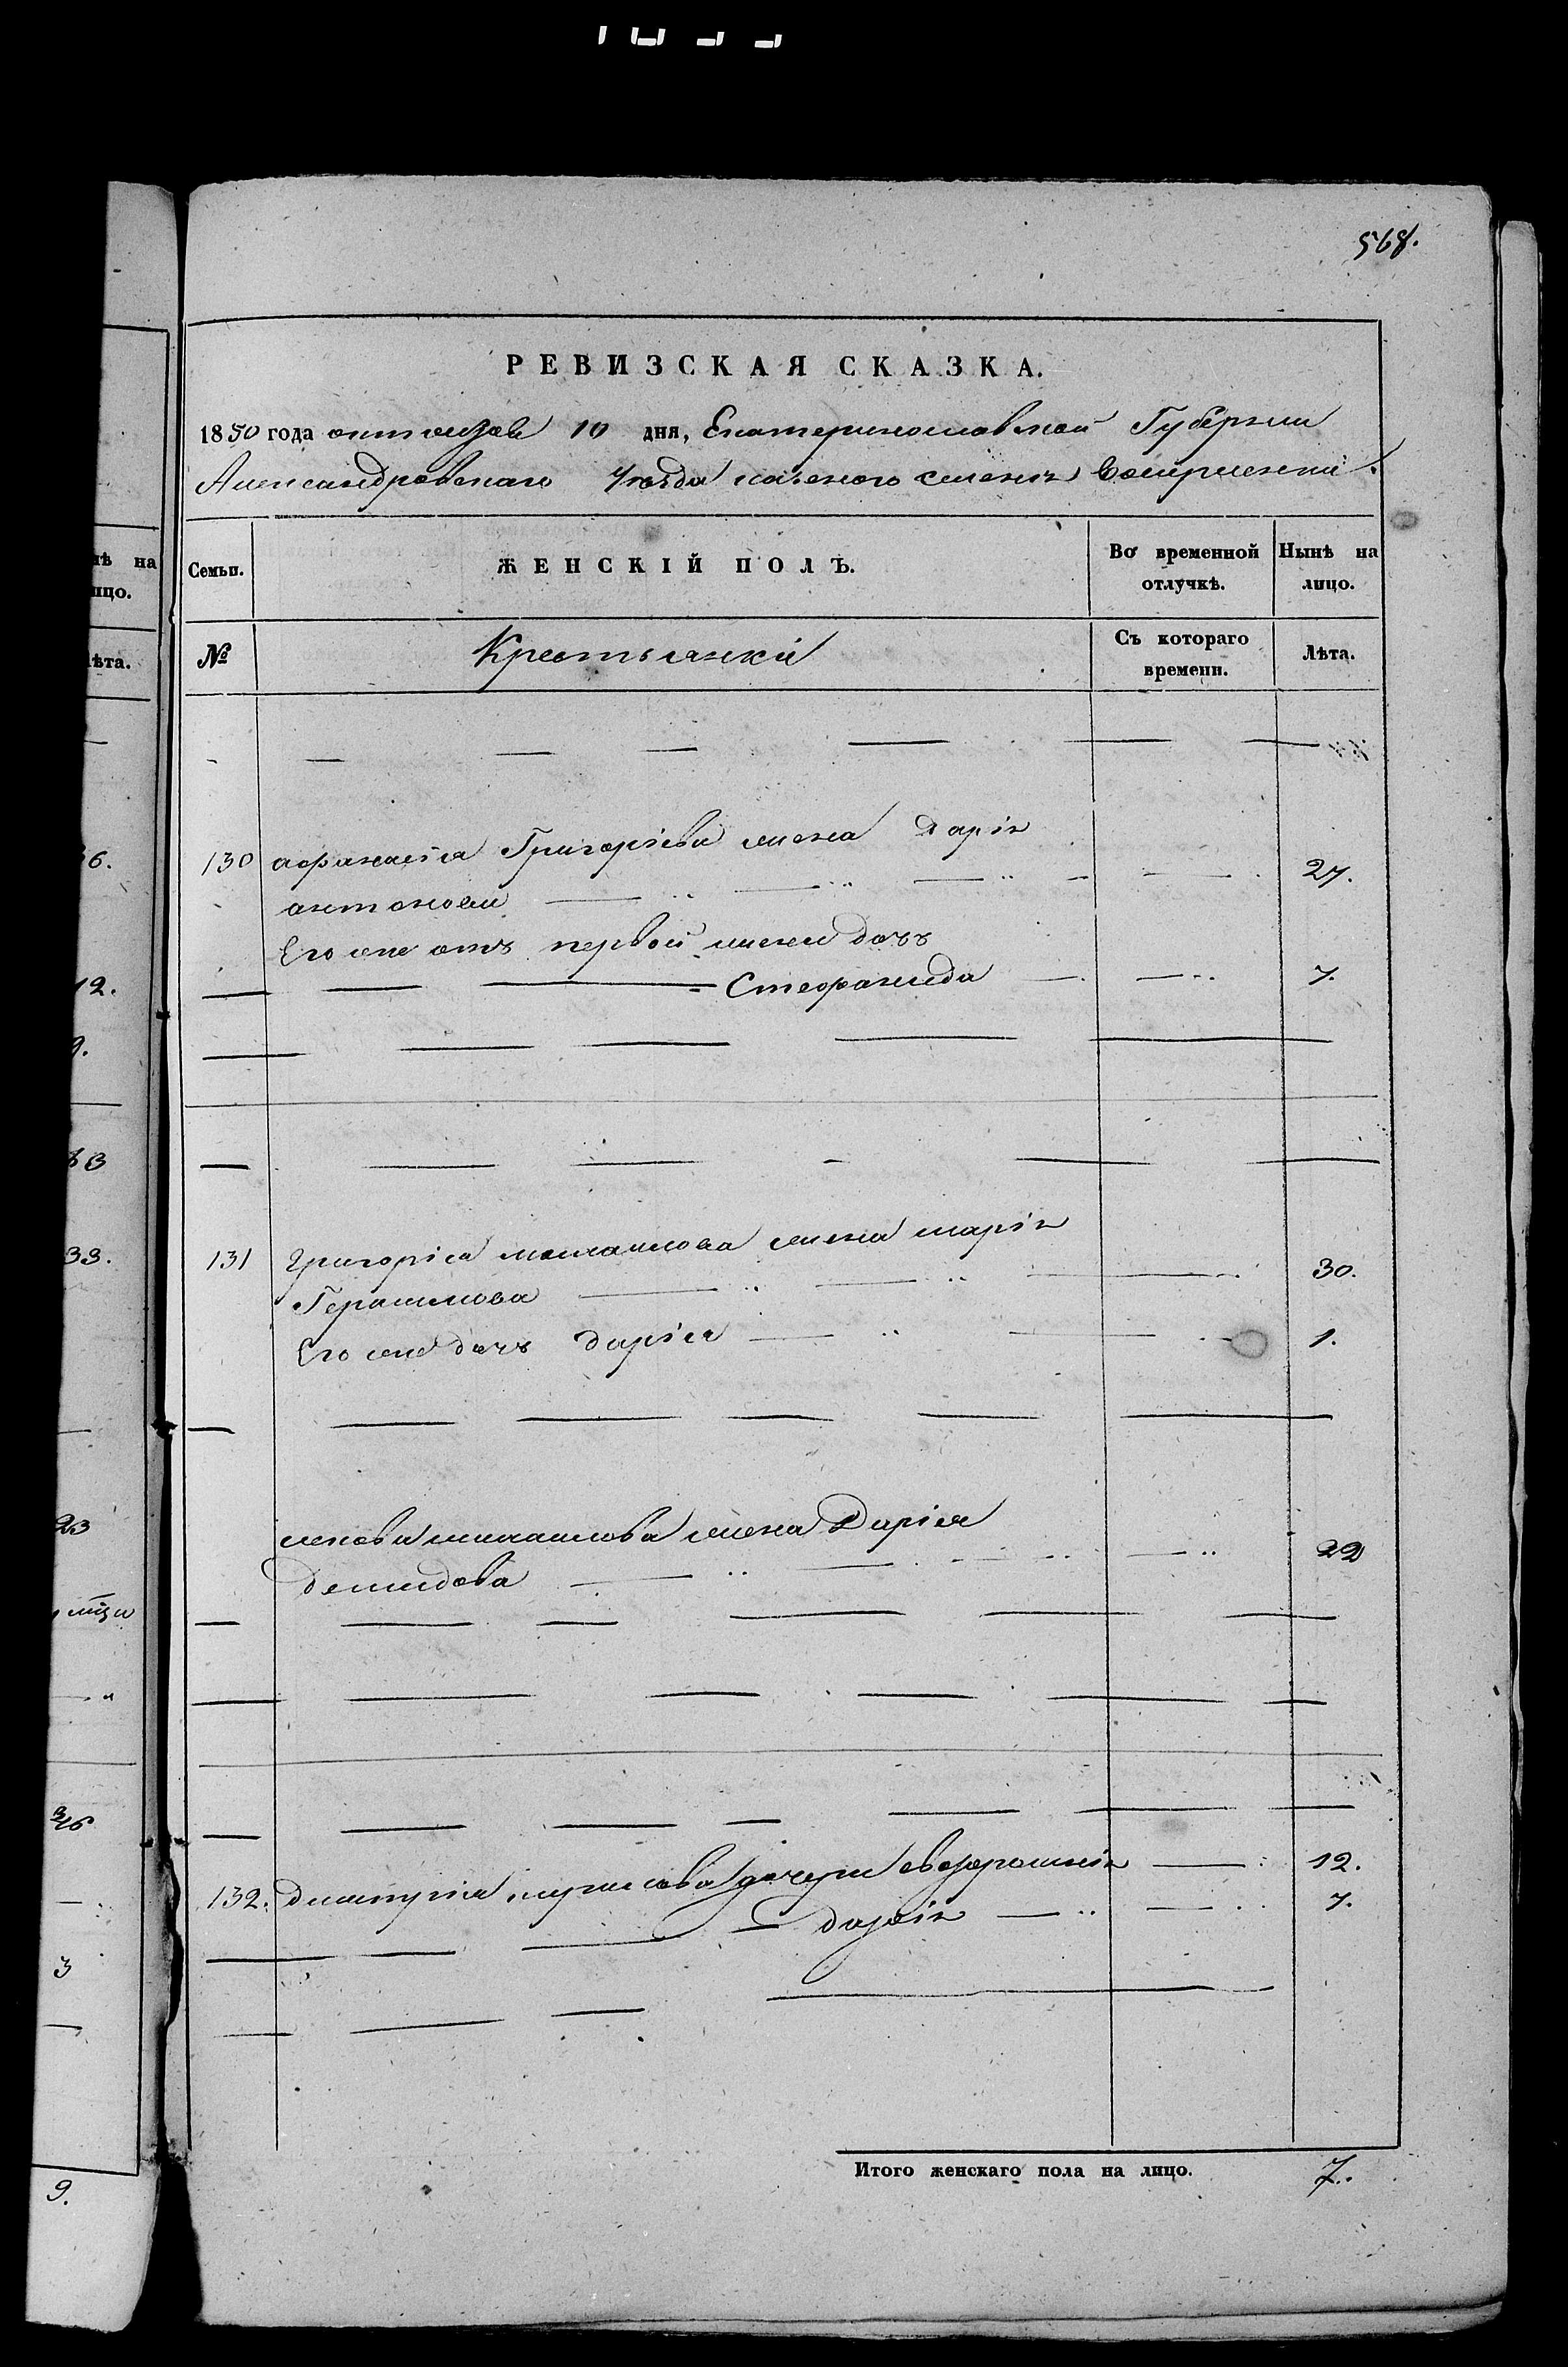 568.
РЕВИЗСКАЯ СКАЗКА.
1850 года октября 10 дня, Екатеринославской Губерніи
Александровскаго Уѣзда казеного
Семьи. ЖЕНСКІЙ ПОЛЪ. Во временной отлучкѣ. Нынѣ на лицо.
№ Крестьянки Съ котораго времени. Лѣта.
130 афанасія Григоріева жена Дарія
антонова 27.
Его же отъ первой жены дочь
Стефанида 7.
131 Григорія михаилова жена марія
Герасимова 30.
Его же дочь дарія 1.
якова михаилова жена Дарія
Демидова 22
132. дмитрія дочери евфросинія 12.
дарія 7.
Итого женскаго пола на лицо. 7.
нѣ на
ицо.
лѣта.
6.
12.
9.
33.
23
3
9.